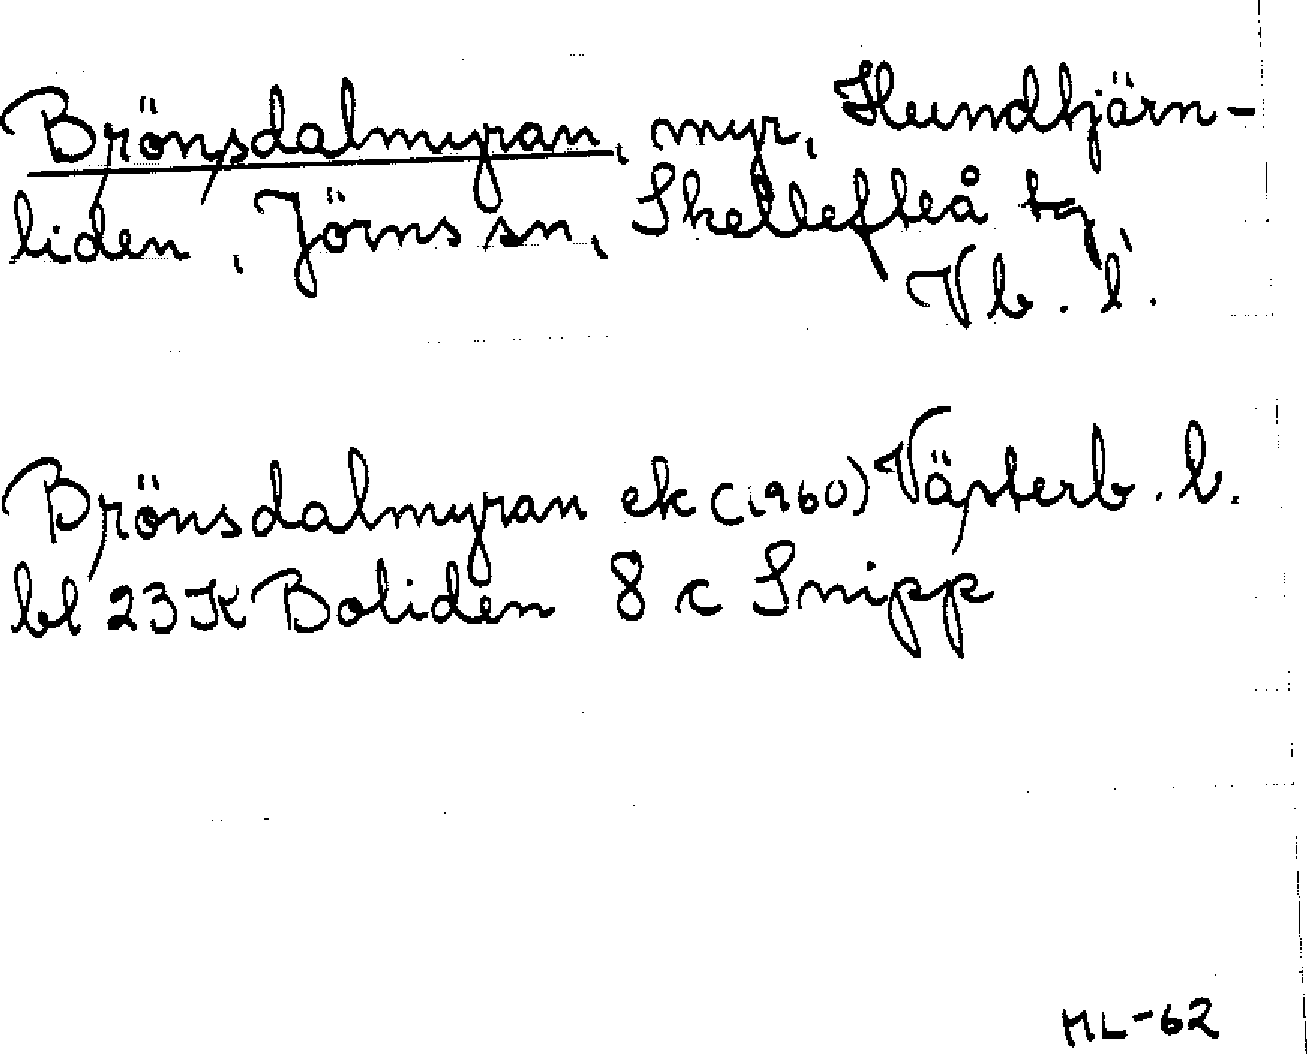 Brönsdalmyran, myr, Hundtjärn-
liden, Jörns sn, Skellefteå tg,
Vb. l.
Brönsdalmyran ek (1960) Västerb. l.
bl 23K Boliden 8 c Snipp
ML-62